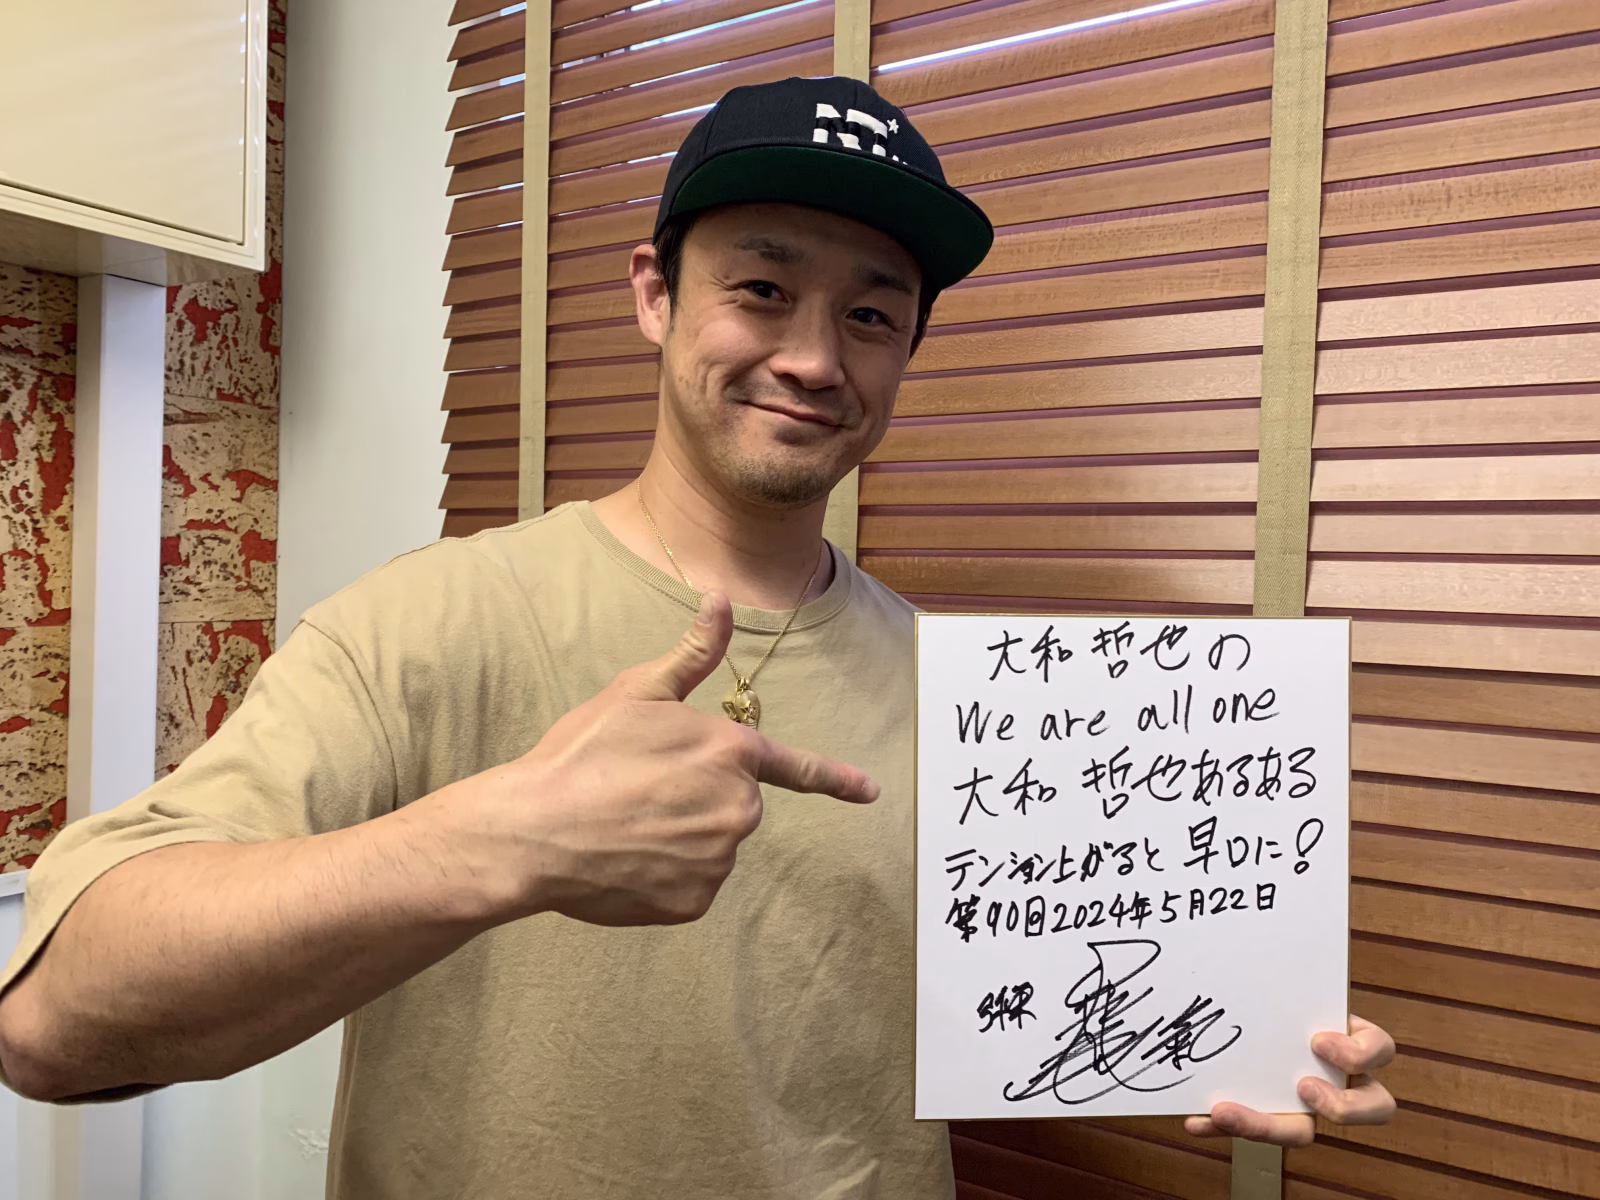 NT
大和哲也の
We are all one
大和哲也あるある
テンション上がると早口に!
第90回2024年5月22日